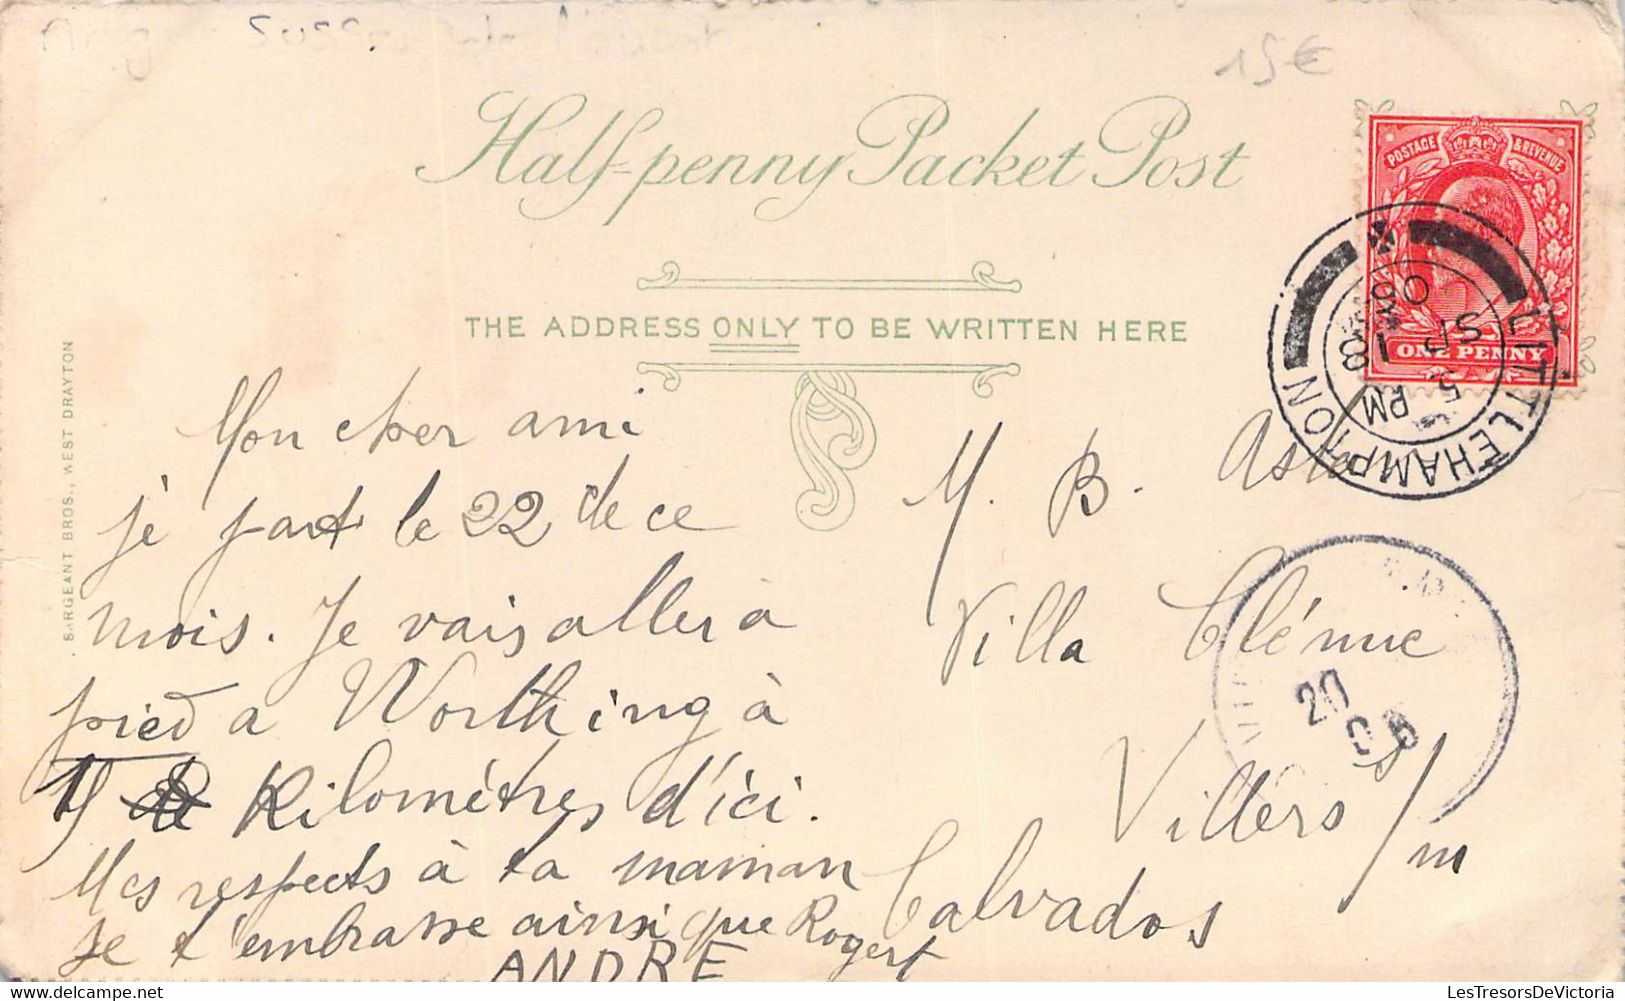 15€
Half-penny Packet Post
POSTAGE & REVENUE
ONE PENNY
THE ADDRESS ONLY TO BE WRITTEN HERE
LITTLEHAMPTON
5 PM
SP 18
SARGEANT BROS., WEST DRAYTON
Mon cher ami
je part le 22 de ce
mois. Je vais aller à
pied a Worthing à
Kilomètres d'ici.
Mes respects à ta maman
Je t'embrasse ainsi que Rogert
ANDRE
M. B.
Villa
Villers s/m
Calvados
20
delcampe.net
LesTresorsDeVictoria